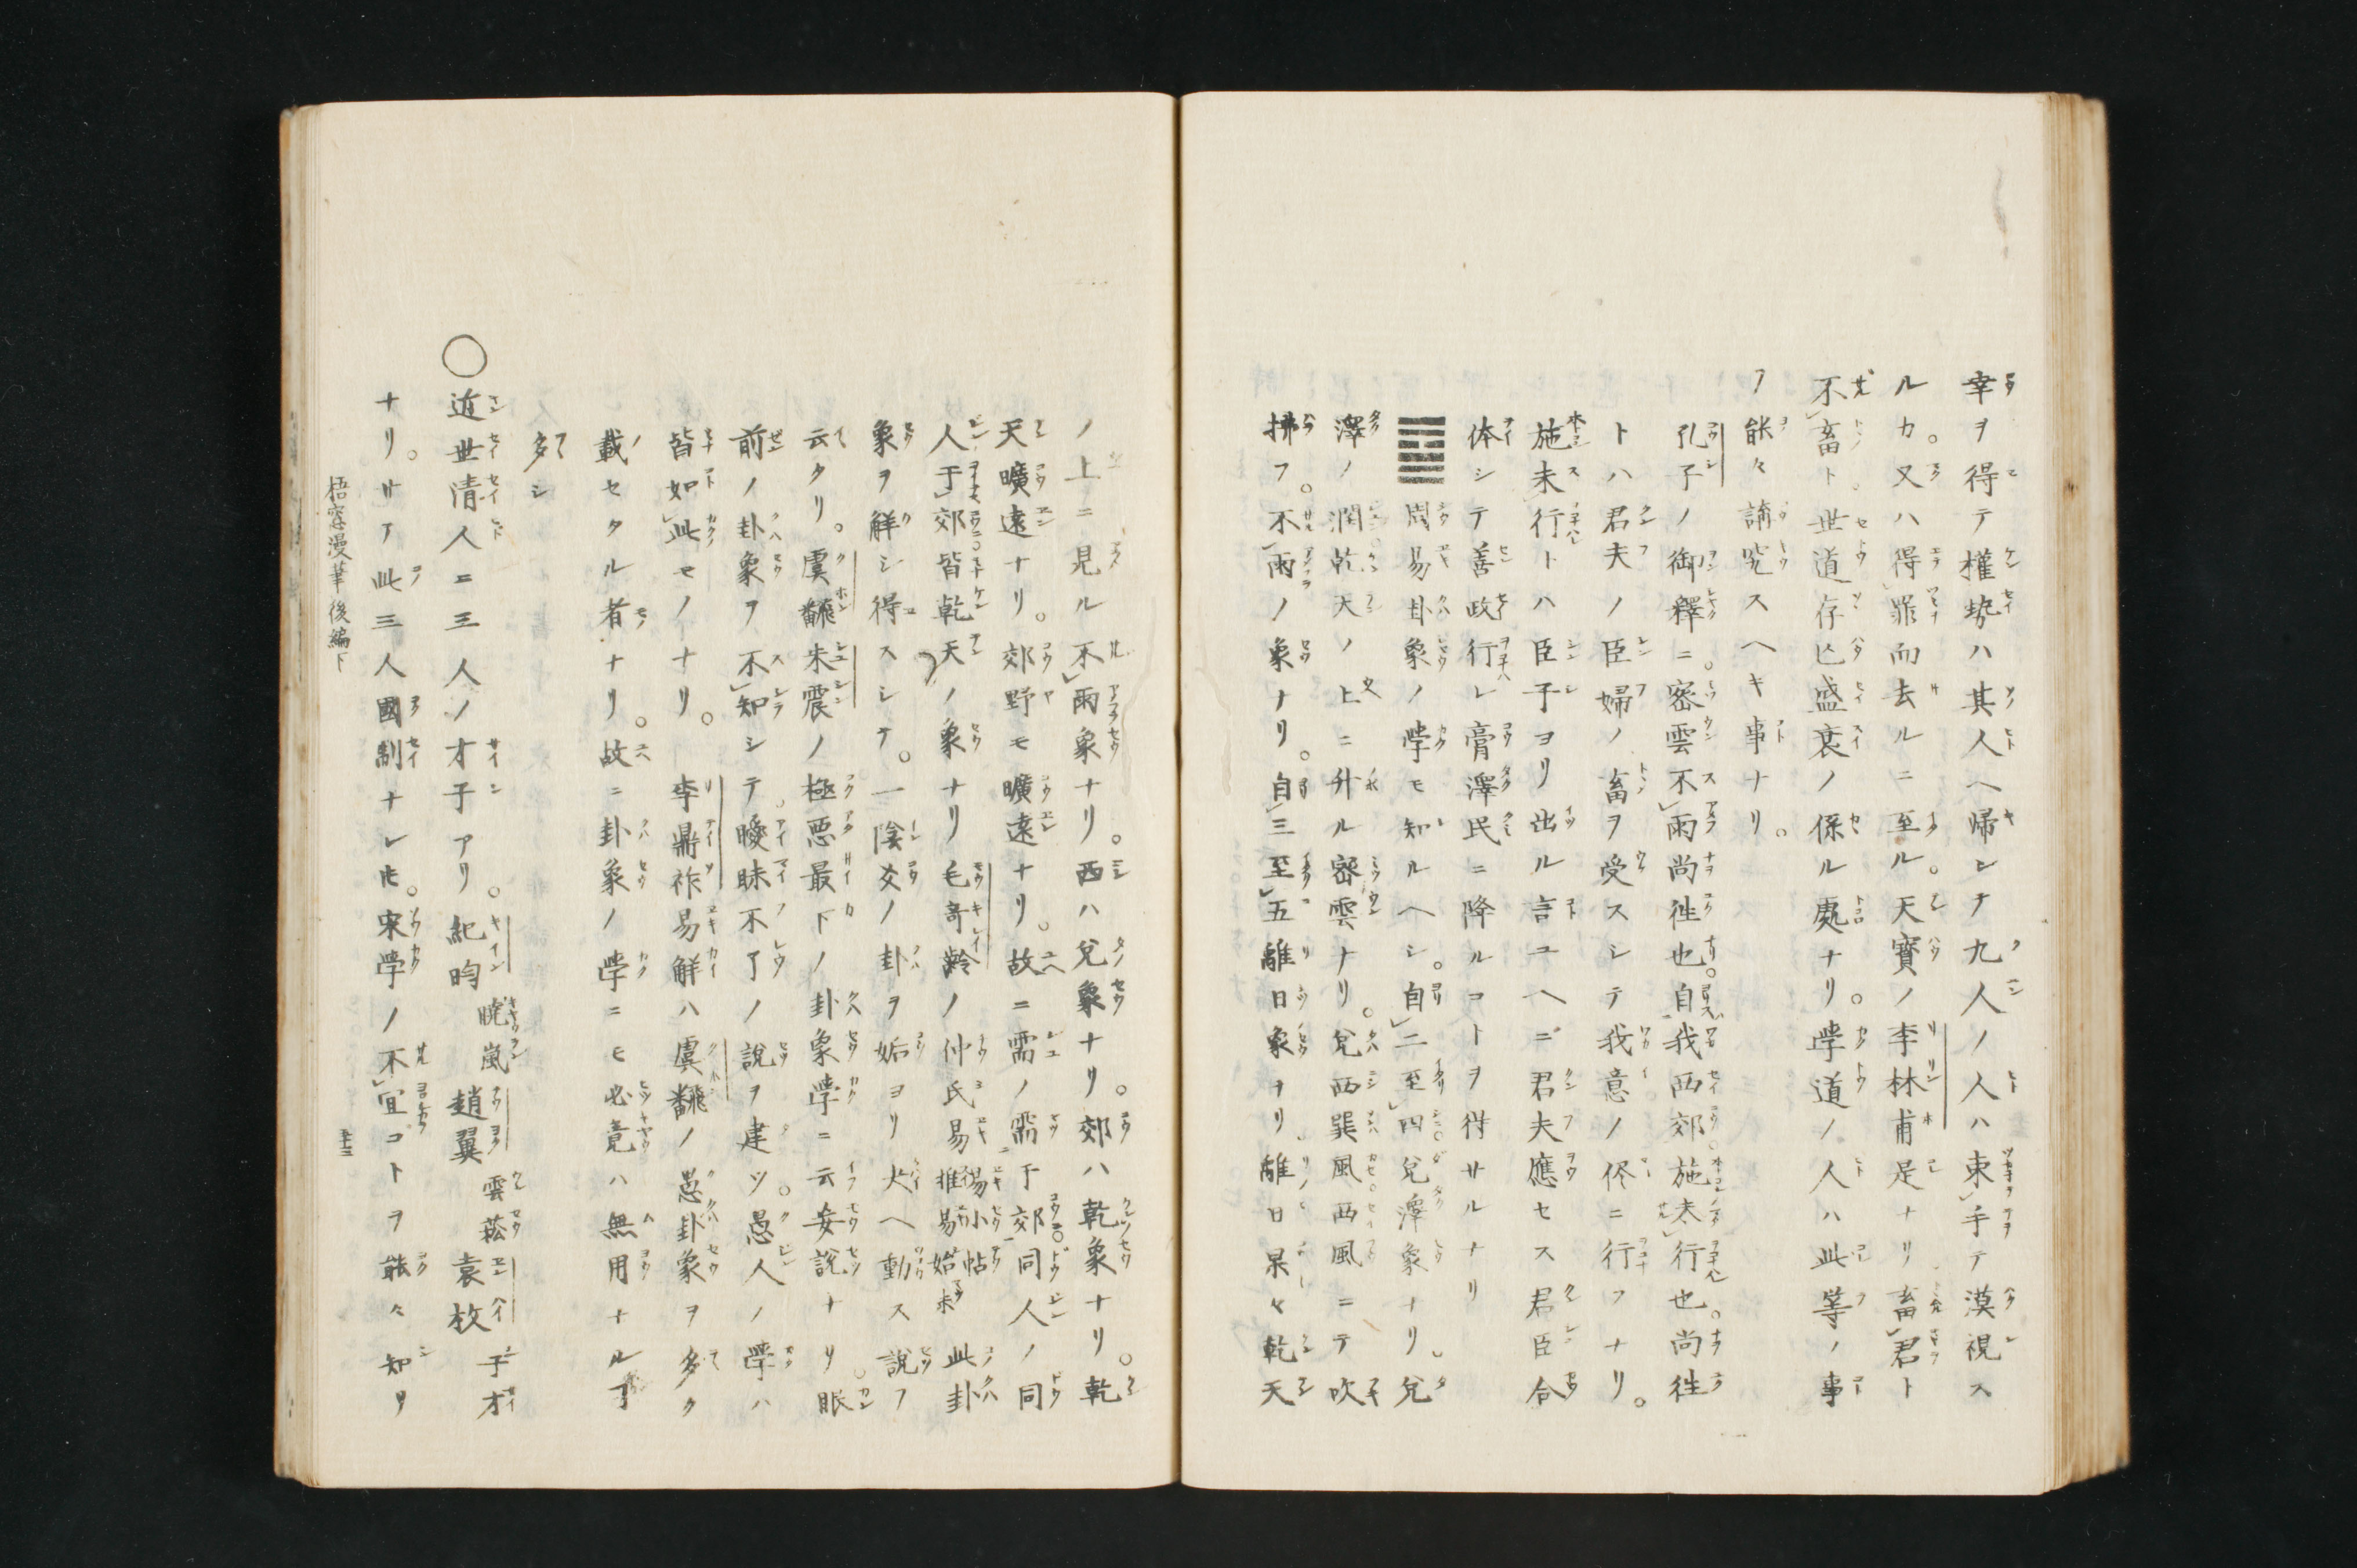 幸ヲ得テ權勢ハ其人ヘ帰シテ九人ノ人ハ束手テ漠視ス
ルカ。又ハ得罪而去ルニ至ル。天寳ノ李林甫足ナリ畜君ト
不畜ト世道存亡盛衰ノ係ル處ナリ。学道ノ人ハ此等ノ事
ヲ能々講究スヘキ事ナリ。
孔子ノ御釋ニ。密雲不雨尚徃也。自我西郊。施未行也。尚徃
トハ君夫ノ臣婦ノ畜ヲ受スシテ我意ノ侭ニ行フナリ。
施未行トハ臣子ヨリ出ル言ユヘニ君夫應セス君臣合
体シテ善政行レ膏澤民ニ降ルコトヲ得サルナリ
周易卦象ノ学モ知ルヘシ。自二至四兌澤象ナリ。兌
澤ノ潤乾天ノ上ニ升ル密雲ナリ。兌西巽風西風ニテ吹
拂フ。不雨ノ象ナリ。自三至五離日象ナリ離日杲々乾天
ノ上ニ見ル不雨象ナリ。西ハ兌象ナリ。郊ハ乾象ナリ。乾
天曠遠ナリ。郊野モ曠遠ナリ。故ニ需ノ需于郊同人ノ同
人于郊皆乾天ノ象ナリ毛奇齢ノ仲氏易推易始末易小帖此卦
象ヲ解シ得スシテ。一陰爻ノ卦ヲ姤ヨリ夬ヘ動ス説ヲ
云タリ。虞飜朱震ノ極悪最下ノ卦象学ニ云妄説ナリ。眼
前ノ卦象ヲ不知シテ曖昧不了ノ説ヲ建ツ。愚人ノ学ハ
皆如此モノナリ。李鼎祚易解ハ虞飜ノ愚卦象ヲ多ク
載セタル者ナリ。故ニ卦象ノ学ニモ必竟ハ無用ナル丁
多シ
○近世清人ニ三人ノ才子アリ。紀昀暁嵐趙翼雲菘袁枚子才
ナリ。サテ此三人國制ナレ𪜈。宋学ノ不宜コトヲ能々知リ
梧窓漫筆後編下